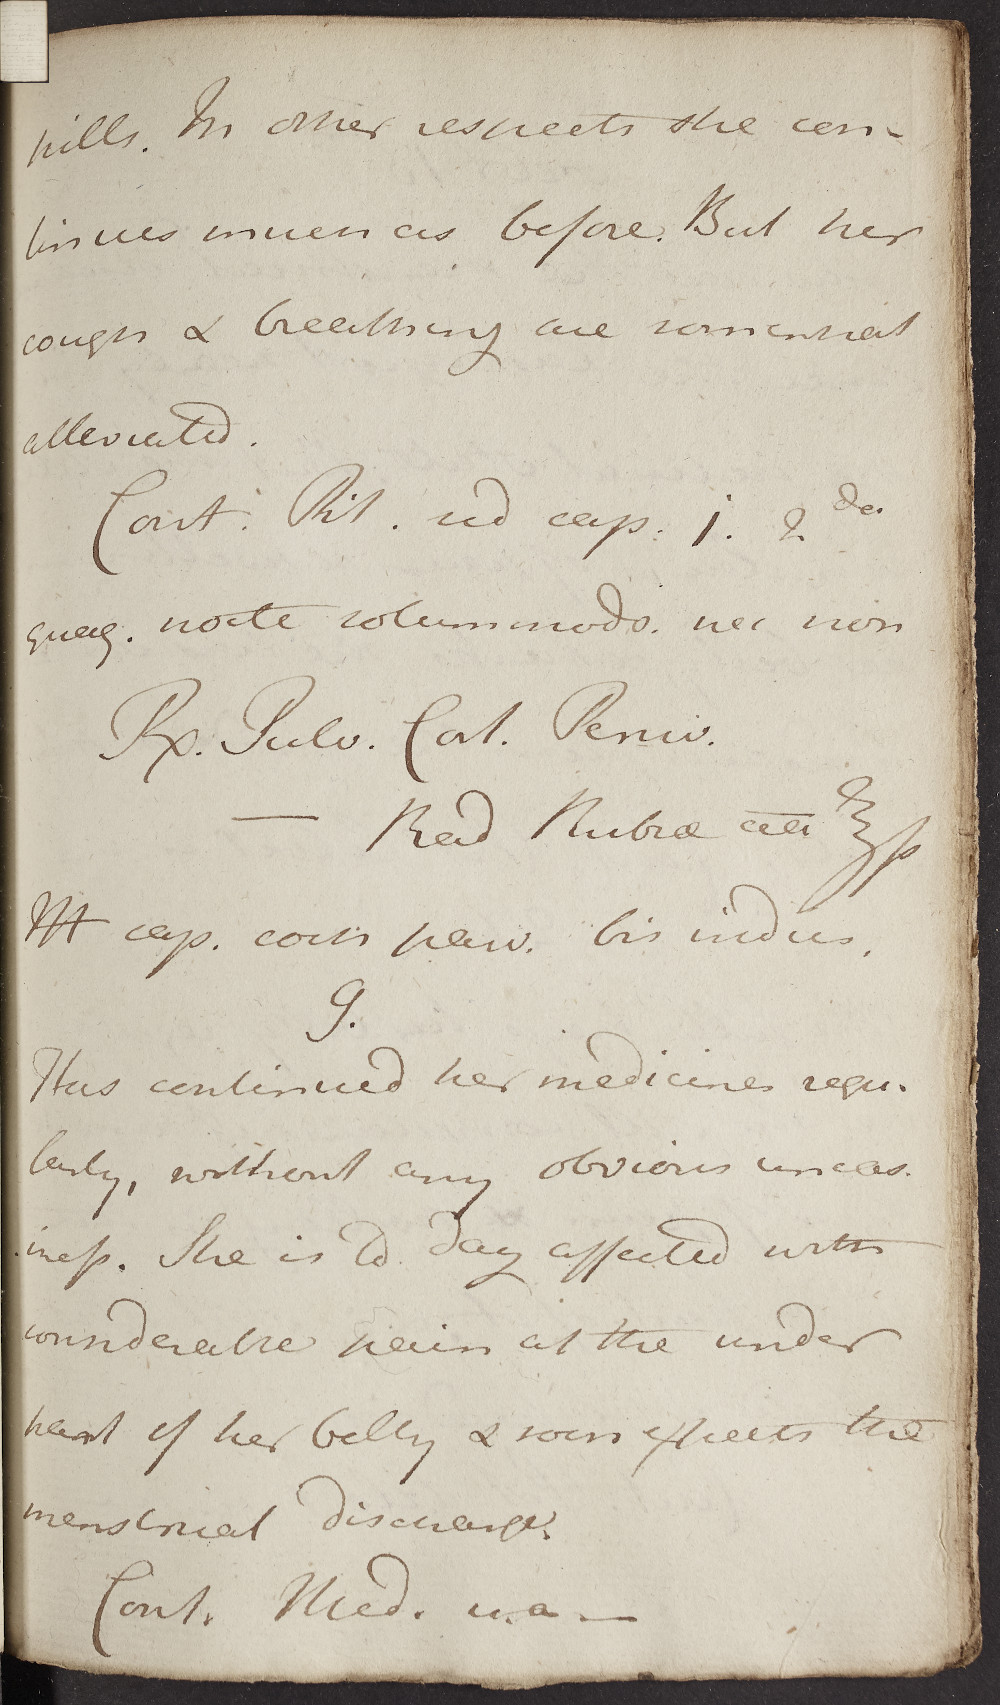 pills. In other respects she con-
tinues much as before. But her
cough & breathing are somewhat
alleviated.
Cont. Pil. ud cap. j. 2da
quaq. nocte solummodo. nec non
Rx. Pulv. Cort. Peruv.
— Rad Rubiæ āā ℥ſs
M cap. coch parv. bis indies.
9.
Has continued her medicines regu-
larly, without any obvious uneas-
iness. She is to day affected with
considerable pain at the under
part of her belly & soon expects the
menstrual discharge.
Cont. Med. u.a—